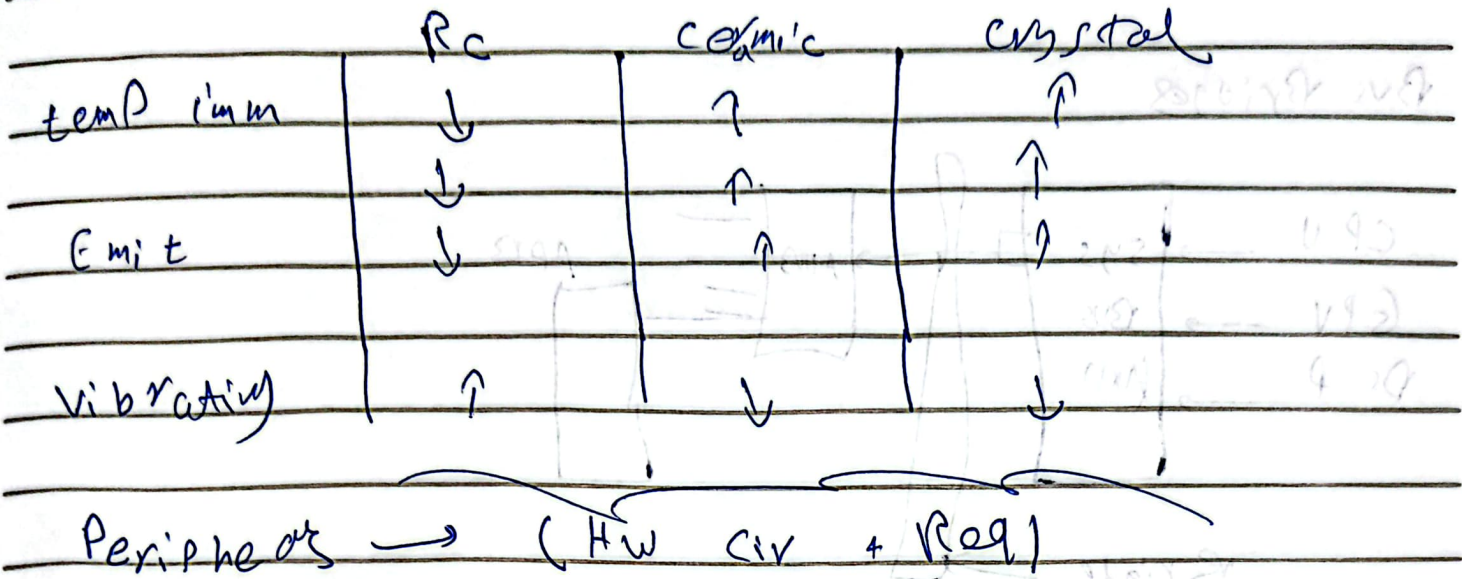 Rc ceramic crystal
temp imm ↓ ↑ ↑
↓ ↑ ↑
Emit ↓ ↑ ↑
Vibrating ↑ ↓ ↓
Peripherals → (HW Cir + Reg)